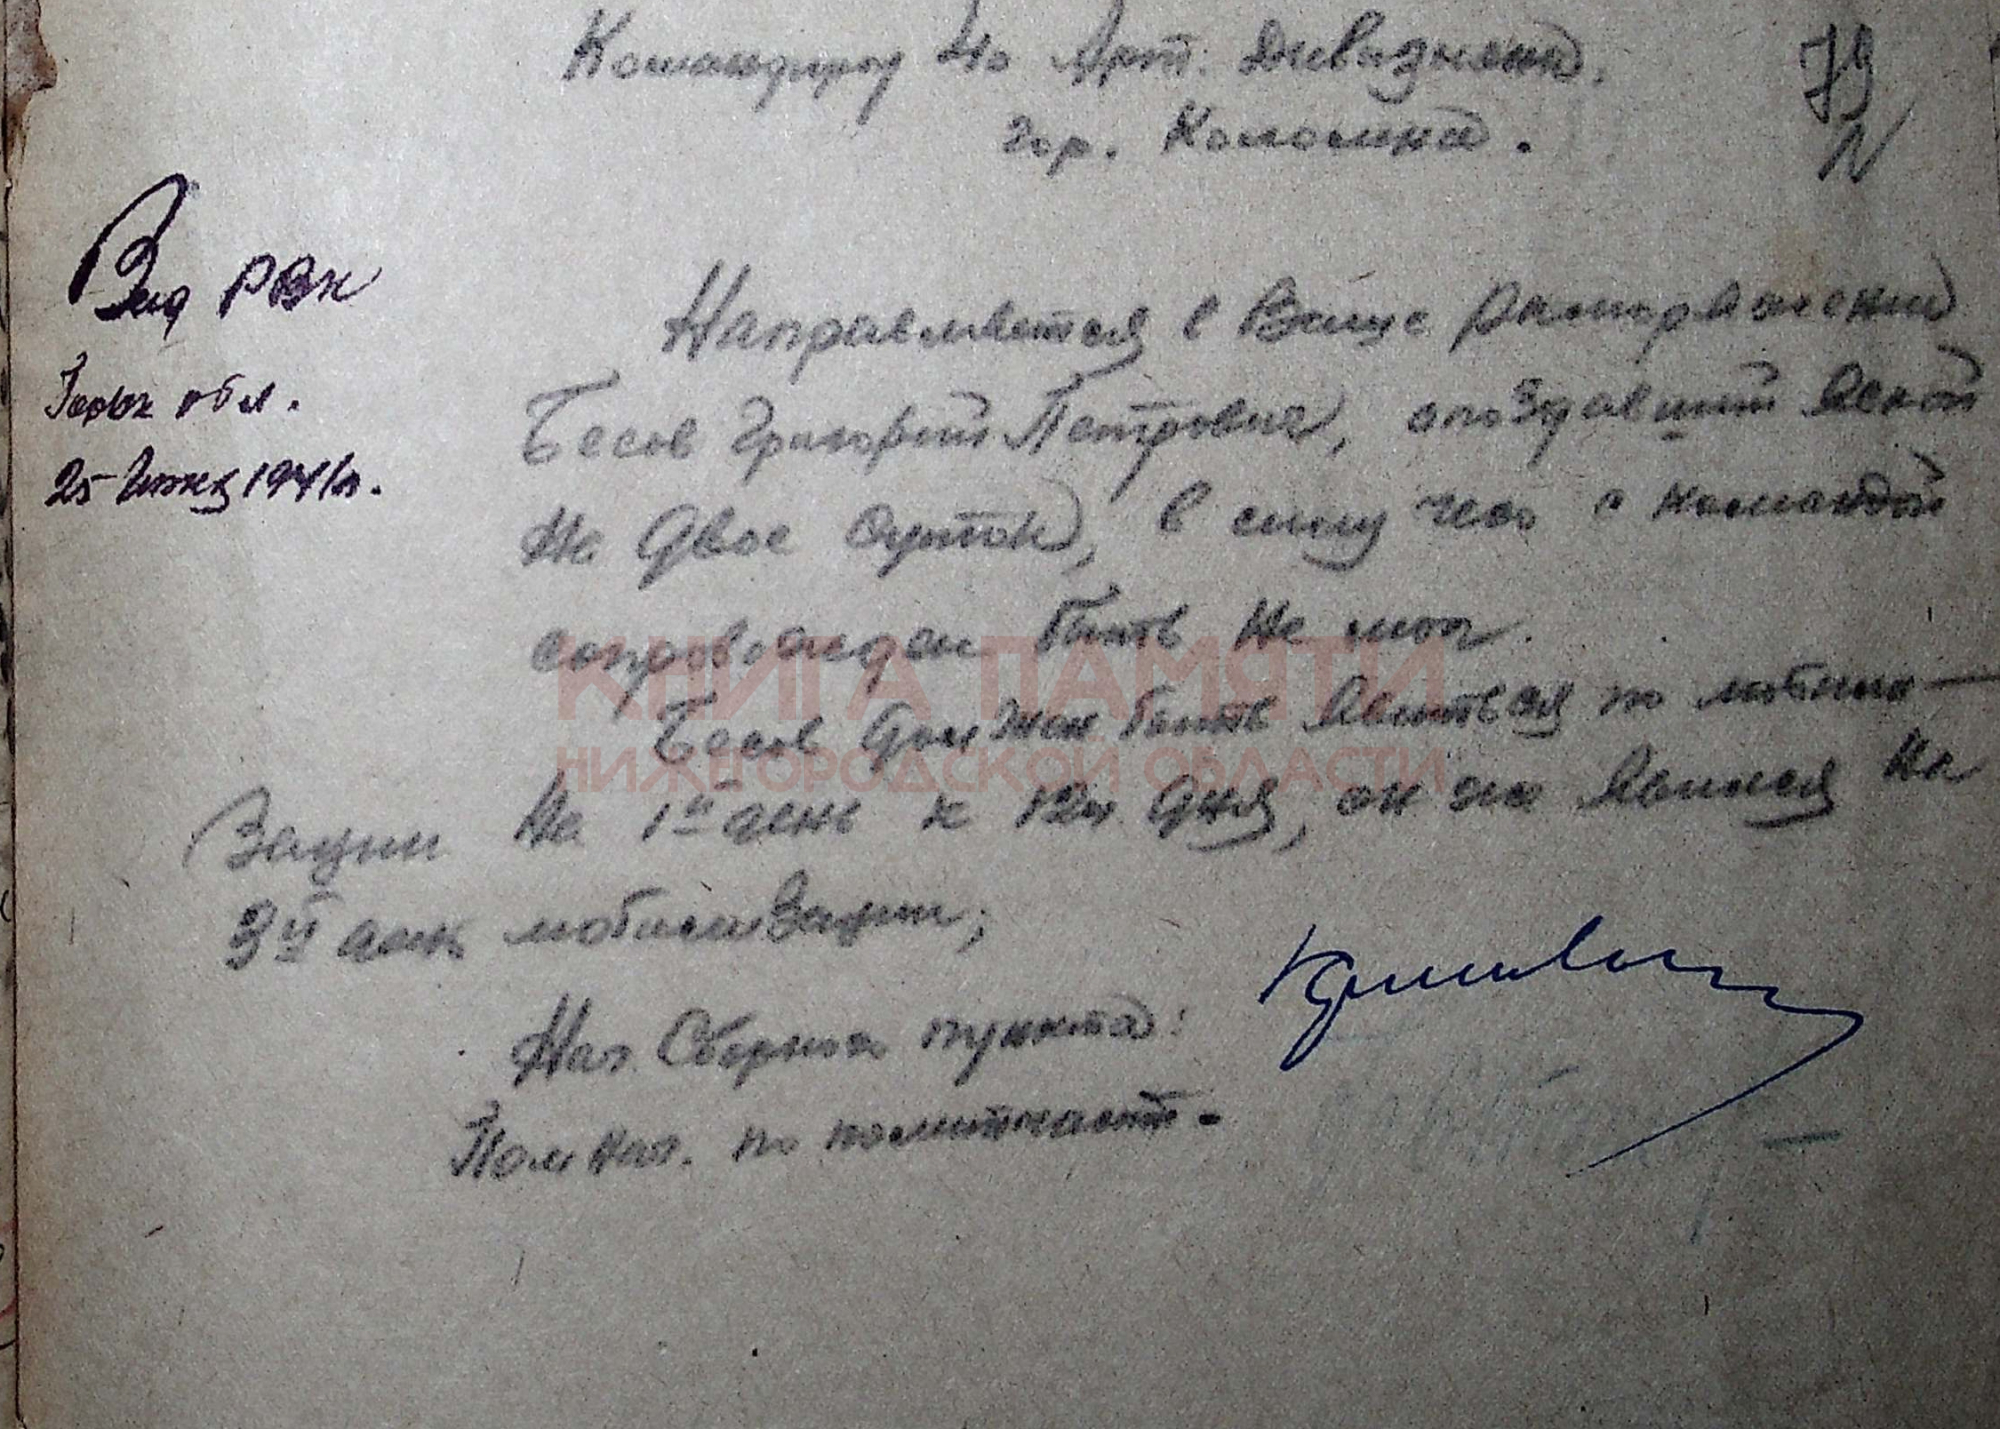 Командиру 4о Арт. Дивизиона.
гор. Коломна.
79
Вад РВК
Горьк обл.
25 Июня 1941 г.
Направляется в Ваше распоряжение
Бесов Григорий Петрович, опоздавший явкой
на двое суток, в силу чего с командой
сопровожден быть не мог.
Бесов должен быть явиться по мобили-
зации на 1й день к 12ч дня, он же явился на
3й день мобилизации;
Нач. Сборного пункта:
Пом нач. по политчаст.
КНИГА ПАМЯТИ
НИЖЕГОРОДСКОЙ ОБЛАСТИ